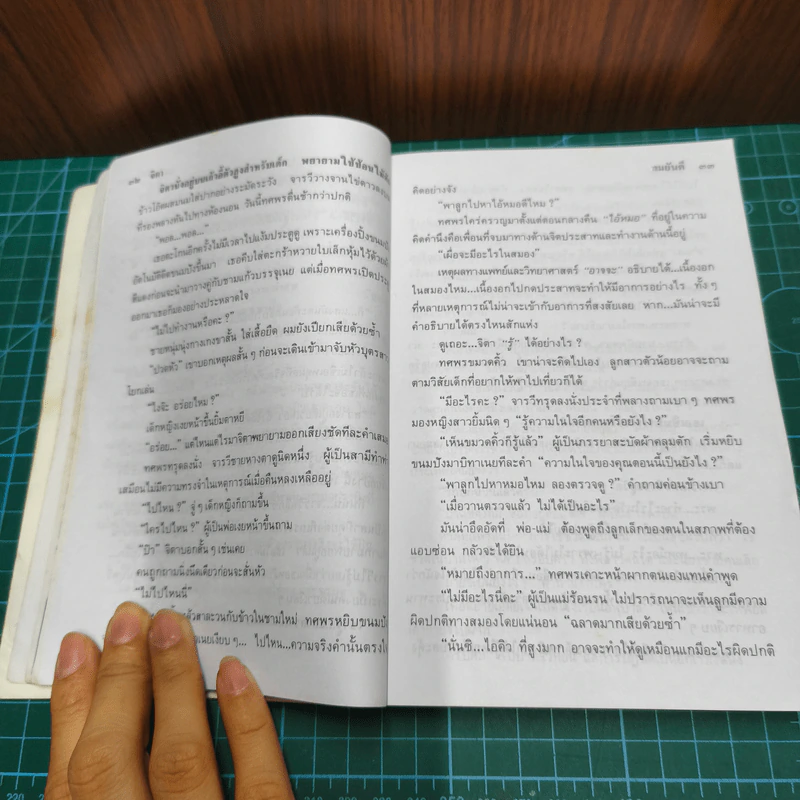 ๓๒ จิดา
จิดานั่งอยู่บนเก้าอี้ตัวสูงสำหรับเด็ก พยายามใช้ช้อนไม้
ข้าวโอ๊ตผสมนมใส่ปากอย่างระมัดระวัง จารวีวางจานไข่ดาวลง
ที่รองพลางหันไปทางห้องนอน วันนี้ทศพรตื่นช้ากว่าปกติ
“พอล...พอล...”
เธอตะโกนอีกครั้งไม่มีเวลาไปแง้มประตูดู เพราะเครื่องปิ้งขนมปัง
อัตโนมัติดีดขนมปังขึ้นมา เธอคีบใส่ตะกร้าหวายใบเล็กหุ้มไว้ด้วย
ก่อนจะนำมาวางคู่กับชามแก้วบรรจุเนย แต่เมื่อทศพรเปิดประตู
ออกมาเธอก็มองอย่างประหลาดใจ
“ไม่ไปทำงานหรือคะ ?”
ชายหนุ่มนุ่งกางเกงขาสั้น ใส่เสื้อยืด ผมยังเปียกเสียด้วยซ้ำ
“ปวดหัว” เขาบอกเหตุผลสั้น ๆ ก่อนจะเดินเข้ามาจับหัวบุตรสาว
โยกเล่น
“ไงจ๊ะ อร่อยไหม ?”
เด็กหญิงเงยหน้าขึ้นยิ้มตาหยี
“อร่อย...” แต่ไหนแต่ไรมาจิดาพยายามออกเสียงชัดทีละคำเสมอ
ทศพรทรุดลงนั่ง จารวีชายหางตาดูนิดหนึ่ง ผู้เป็นสามีทำท่า
เสมือนไม่มีความทรงจำในเหตุการณ์เมื่อคืนหลงเหลืออยู่
“ไปไหน ?” จู่ ๆ เด็กหญิงก็ถามขึ้น
“ใครไปไหน ?” ผู้เป็นพ่อเงยหน้าขึ้นถาม
“บิ๊ว” จิดาบอกสั้น ๆ เช่นเคย
คนถูกถามนิ่งนึดเดียวก่อนจะสั่นหัว
“ไม่ไปไหนนี่”
แล้วสาละวนกับข้าวในชามใหม่ ทศพรหยิบขนมปัง
เนยเงียบ ๆ... ไปไหน...ความจริงคำนั้นตรงใจ
ทมยันตี ๓๓
คิดอย่างจัง
“พาลูกไปหาไอ้หมอดีไหม ?”
ทศพรใคร่ครวญมาตั้งแต่ตอนกลางคืน “ไอ้หมอ” ที่อยู่ในความ
คิดคำนึงคือเพื่อนที่จบมาทางด้านจิตประสาทและทำงานด้านนี้อยู่
“เผื่อจะมีอะไรในสมอง”
เหตุผลทางแพทย์และวิทยาศาสตร์ “อาจจะ” อธิบายได้...เนื้องอก
ในสมองไหม...เนื้องอกไปกดประสาทจะทำให้มีอาการอย่างไร ทั้ง ๆ
ที่หลายเหตุการณ์ไม่น่าจะเข้ากับอาการที่สงสัยเลย หาก...มันน่าจะมี
คำอธิบายได้ตรงไหนสักแห่ง
ดูเถอะ...จิดา “รู้” ได้อย่างไร ?
ทศพรขมวดคิ้ว เขาน่าจะคิดไปเอง ลูกสาวตัวน้อยอาจจะถาม
ตามวิสัยเด็กที่อยากให้พาไปเที่ยวก็ได้
“มีอะไรคะ ?” จารวีทรุดลงนั่งประจำที่พลางถามเบา ๆ ทศพร
มองหญิงสาวยิ้มนิด ๆ “รู้ความในใจอีกคนหรือยังไง ?”
“เห็นขมวดคิ้วก็รู้แล้ว” ผู้เป็นภรรยาสะบัดผ้าคลุมตัก เริ่มหยิบ
ขนมปังมาบิทาเนยทีละคำ “ความในใจของคุณตอนนี้เป็นยังไง ?”
“พาลูกไปหาหมอไหม ลองตรวจดู ?” คำถามค่อนข้างเบา
“เมื่อวานตรวจแล้ว ไม่ได้เป็นอะไร”
มันน่าอึดอัดที่ พ่อ-แม่ ต้องพูดถึงลูกเล็กของตนในสภาพที่ต้อง
แอบซ่อน กลัวจะได้ยิน
“หมายถึงอาการ...” ทศพรเคาะหน้าผากตนเองแทนคำพูด
“ไม่มีอะไรนี่คะ” ผู้เป็นแม่ร้อนรน ไม่ปรารถนาจะเห็นลูกมีความ
ผิดปกติทางสมองโดยแน่นอน “ฉลาดมากเสียด้วยซ้ำ”
“นั่นซิ...ไอคิว ที่สูงมาก อาจจะทำให้ดูเหมือนแกมีอะไรผิดปกติ